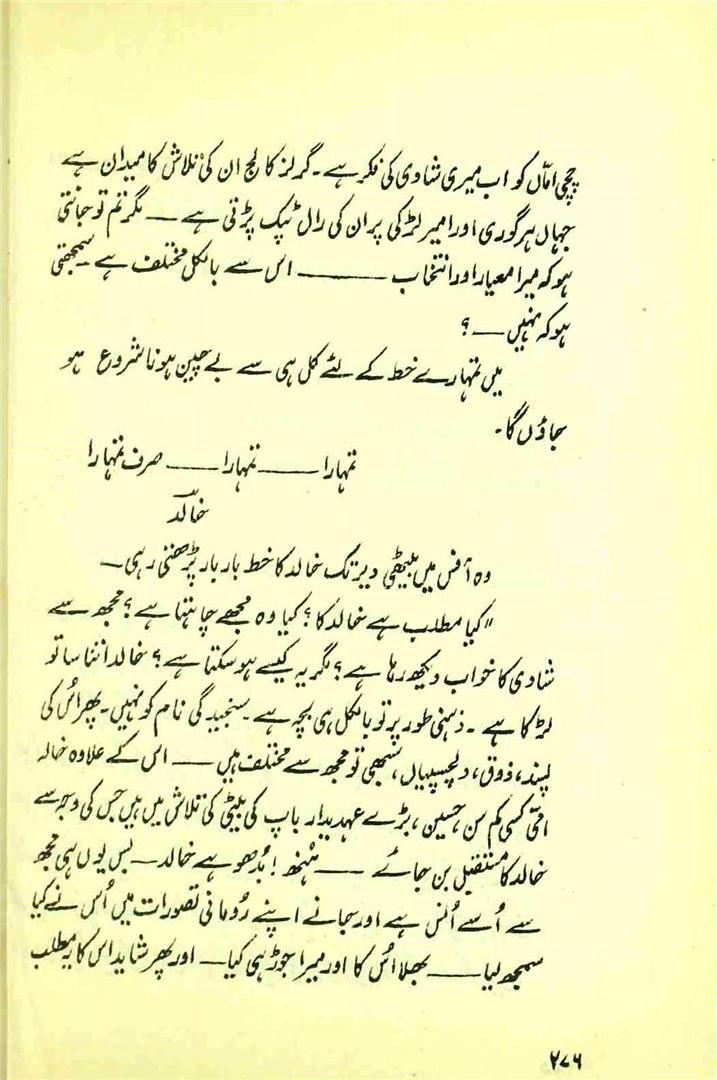 چچی امّاں کو اب میری شادی کی فکر ہے۔ گرلز کالج ان کی تلاش کا میدان ہے
جہاں ہر گوری اور امیر لڑکی پر ان کی رال ٹپک پڑتی ہے —— مگر تم تو جانتی
ہو کہ میرا معیار اور انتخاب ———— اس سے بالکل مختلف ہے۔ سمجھتی
ہو کہ نہیں —؟
میں تمہارے خط کے لئے کل ہی سے بے چین ہونا شروع ہو
جاؤں گا۔
تمہارا ——— تمہارا —— صرف تمہارا
خالد
وہ آفس میں بیٹھی دیر تک خالد کا خط بار بار پڑھتی رہی۔
"کیا مطلب ہے خالد کا؟ کیا وہ مجھے چاہتا ہے؟ مجھ سے
شادی کا خواب دیکھ رہا ہے؟ مگر یہ کیسے ہو سکتا ہے؟ خالد اتنا سا تو
لڑکا ہے۔ ذہنی طور پر تو بالکل ہی بچہ ہے۔ سنجیدگی نام کو نہیں۔ پھر اُس کی
پسند، ذوق، دلچسپیاں، سبھی تو مجھ سے مختلف ہیں —— اس کے علاوہ خالہ
امّی کسی کم سن حسین، بڑے عہدیدار باپ کی بیٹی کی تلاش میں ہیں جس کی وجہ سے
خالد کا مستقبل بن جائے —— ہُنہہ! بُدھو ہے خالد — بس یوں ہی مجھ
سے اُسے اُنس ہے اور جانے اپنے رُومانی تصورات میں اُس نے کیا
سمجھ لیا —— بھلا اُس کا اور میرا جوڑ ہی کیا — اور پھر شاید اس کا یہ مطلب
۲۷۶